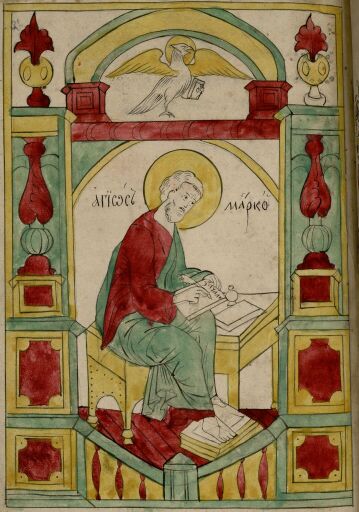 АГЇОСЪ МА́РКО